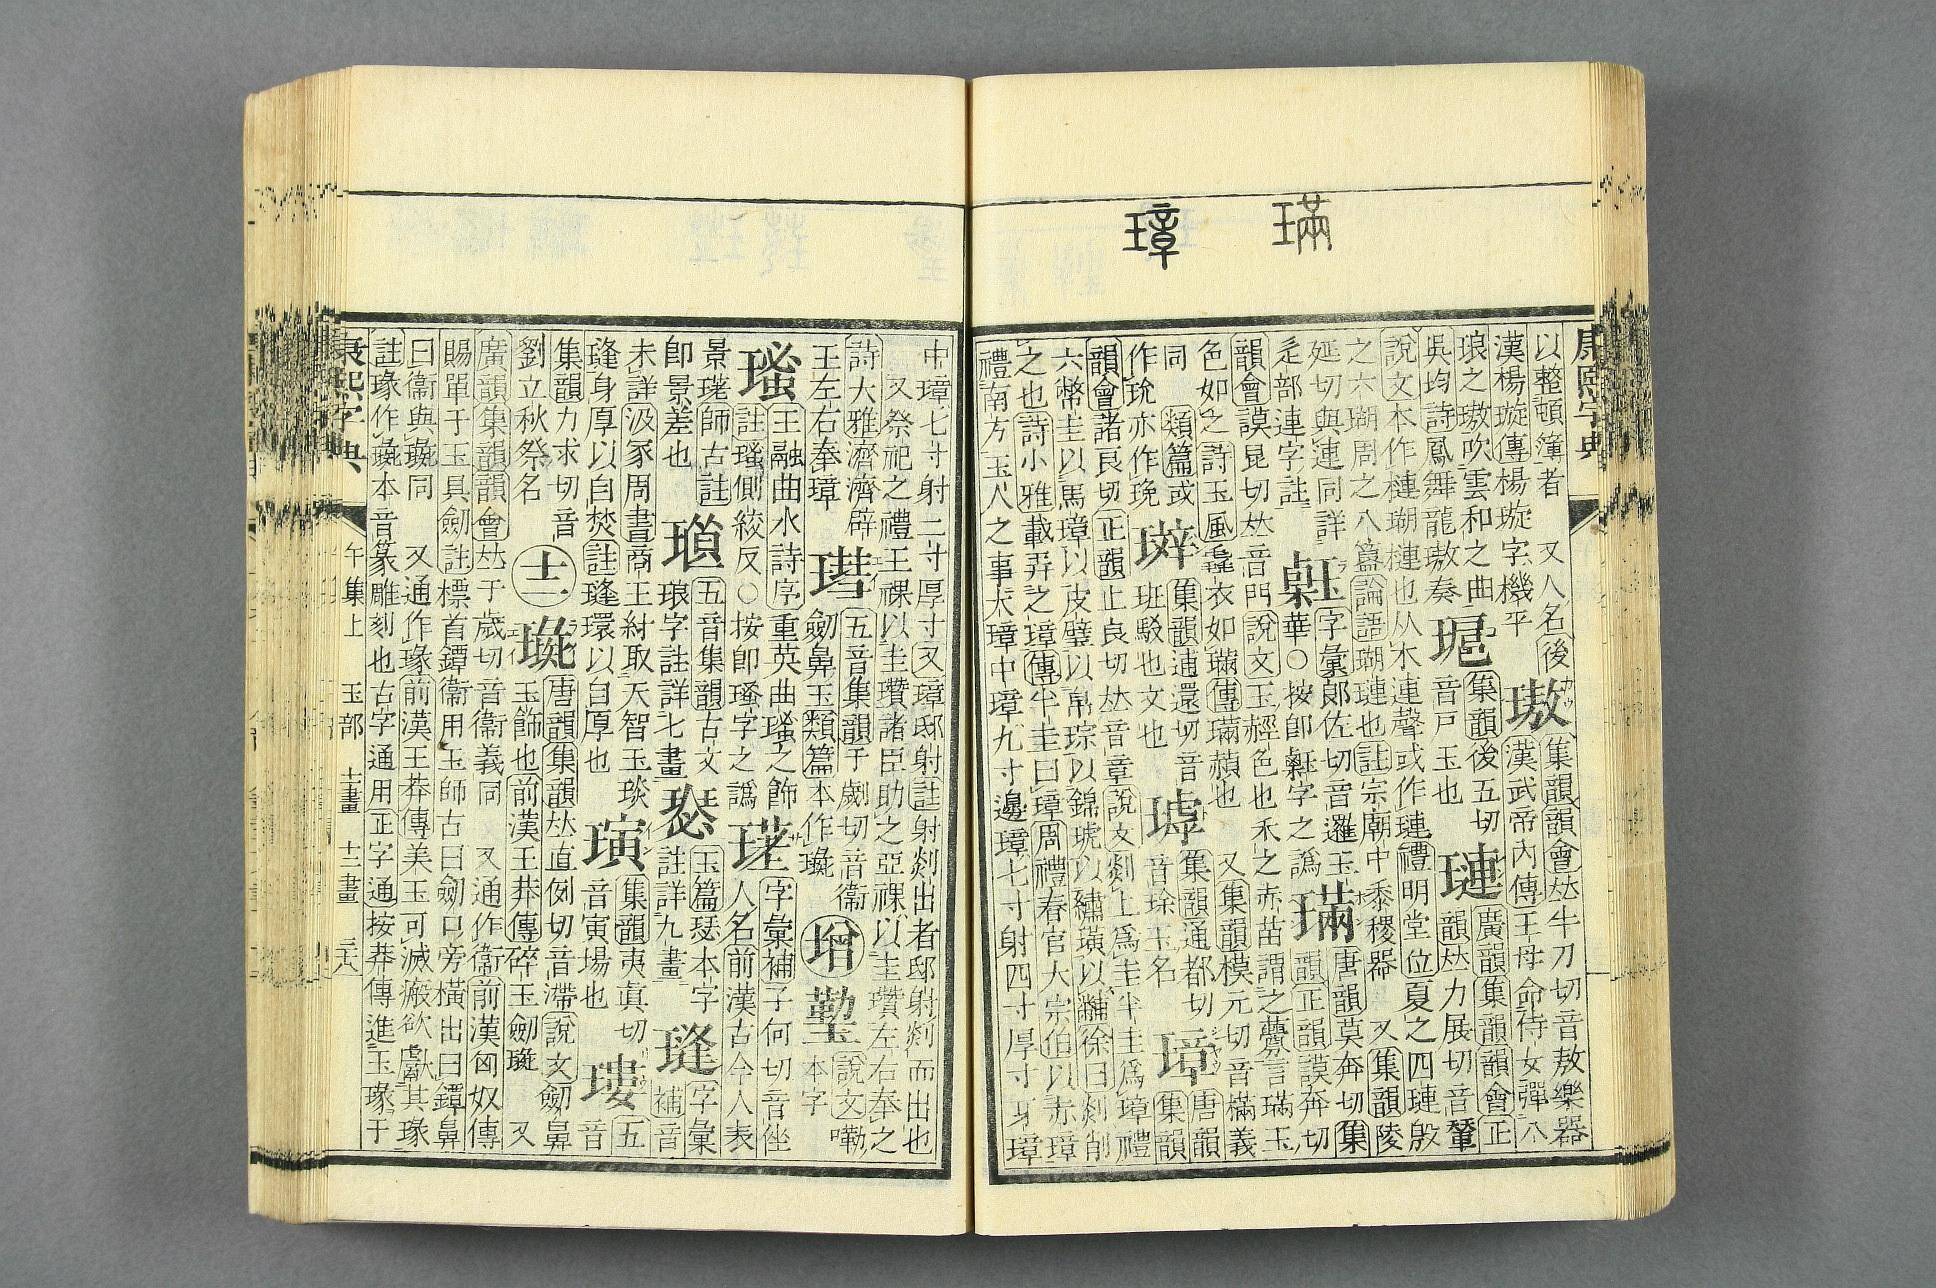 璊
璋
康熙字典
以整頓簿者 又人名後 璈 集韻韻會𠀤牛刀切音敖樂器
漢楊璇傳楊璇字機平 漢武帝內傳王母命侍女彈八
琅之璈吹雲和之曲 集韻後五切 璉 廣韻集韻韻會正
吳均詩鳳舞龍璈奏 音戸玉也 韻𠀤力展切音輦
說文本作槤瑚槤也从木連聲或作璉禮明堂位夏之四璉殷
之六瑚周之八簋論語瑚璉也註宗廟中黍稷器 又集韻陵
延切與連同詳 字彙郎佐切音邏玉 璊 唐韻莫奔切集
辵部連字註 華○按卽字之譌 韻正韻謨奔切
韻會謨昆切𠀤音門說文玉經色也禾之赤苗謂之虋言璊玉
色如之詩王風毳衣如璊傳璊赬也 又集韻模元切音樠義
同 類篇或 集韻逋還切音 集韻通都切 璋 唐韻集韻
作玧亦作 班駁也文也 音捈玉名
韻會諸良切正韻止良切𠀤音章說文剡上爲圭半圭爲璋禮
六幣圭以馬璋以皮璧以帛琮以錦琥以繡璜以黼徐曰剡削
之也詩小雅載弄之璋傳半圭曰璋周禮春官大宗伯以赤璋
禮南方玉人之事大璋中璋九寸邊璋七寸射四寸厚寸牙璋
中璋七寸射二寸厚寸又璋邸射註射剡出者邸射剡而出也
又祭祀之禮王祼以圭瓚諸臣助之亞祼以圭瓚左右奉之
詩大雅濟濟辟 五音集韻于劌切音衞 增 說文
王左右奉璋 劒鼻玉類篇本作璏 本字
瑵 王融曲水詩序重英曲瑵之飾 字彙補子何切音坐
註瑵側絞反○按卽瑵字之譌 人名前漢古今人表
景 師古註 五音集韻古文 玉篇瑟本字 字彙
卽景差也 琅字註詳七畫 註詳九畫 補音
未詳汲冢周書商王紂取天智玉琰 璌 集韻夷眞切 瓄 五
琒身厚以自焚註琒環以自厚也 音寅瑒也 音
集韻力求切音 十一 璏 唐韻集韻𠀤直例切音滯說文劒鼻
劉立秋祭名 玉飾也前漢王莽傳碎玉劒璏 又
廣韻集韻韻會𠀤于歲切音衞義同 又通作衞前漢匈奴傳
賜單于玉具劒註標首鐔衞用玉師古曰劒口旁橫出曰鐔鼻
曰衞與璏同 又通作瑑前漢王莽傳美玉可滅瘢欲獻其瑑
註瑑作璏本音篆雕刻也古字通用正字通按莽傳進玉瑑于
康熙字典 午集上 玉部 十二畫